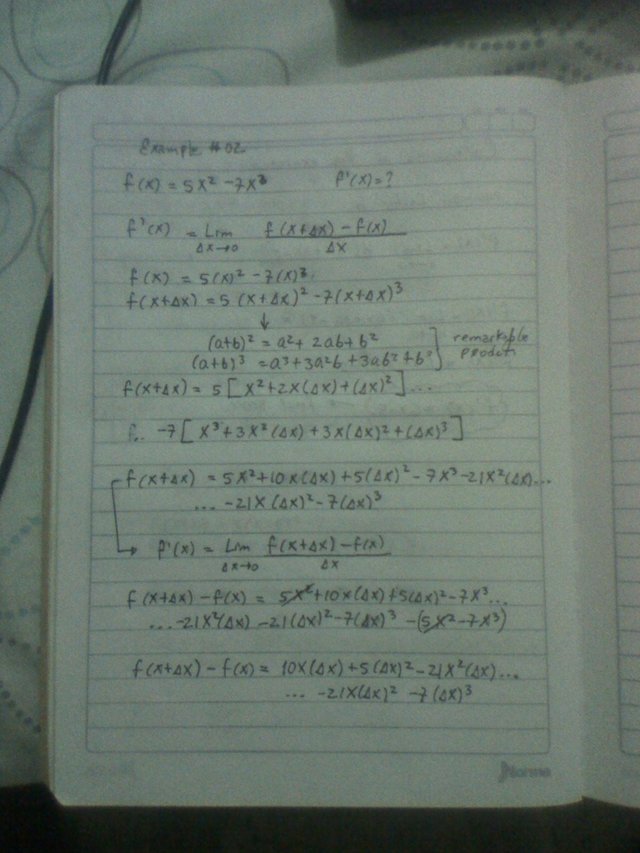 Example #02
f(x) = 5x² - 7x³ f'(x) = ?
f'(x) = Lim Δx→0 f(x+Δx) - f(x) / Δx
f(x) = 5(x)² - 7(x)³
f(x+Δx) = 5(x+Δx)² - 7(x+Δx)³
↓
(a+b)² = a² + 2ab + b²
(a+b)³ = a³ + 3a²b + 3ab² + b³ ] remarkable
f(x+Δx) = 5[x² + 2x(Δx) + (Δx)²]...
-7[x³ + 3x²(Δx) + 3x(Δx)² + (Δx)³]
f(x+Δx) = 5x² + 10x(Δx) + 5(Δx)² - 7x³ - 21x²(Δx)...
... -21x(Δx)² - 7(Δx)³
f'(x) = Lim Δx→0 f(x+Δx) - f(x) / Δx
f(x+Δx) - f(x) = 5x² + 10x(Δx) + 5(Δx)² - 7x³...
... -21x²(Δx) - 21(Δx)² - 7(Δx)³ - (5x² - 7x³)
f(x+Δx) - f(x) = 10x(Δx) + 5(Δx)² - 21x²(Δx)...
... -21x(Δx)² - 7(Δx)³
Norma